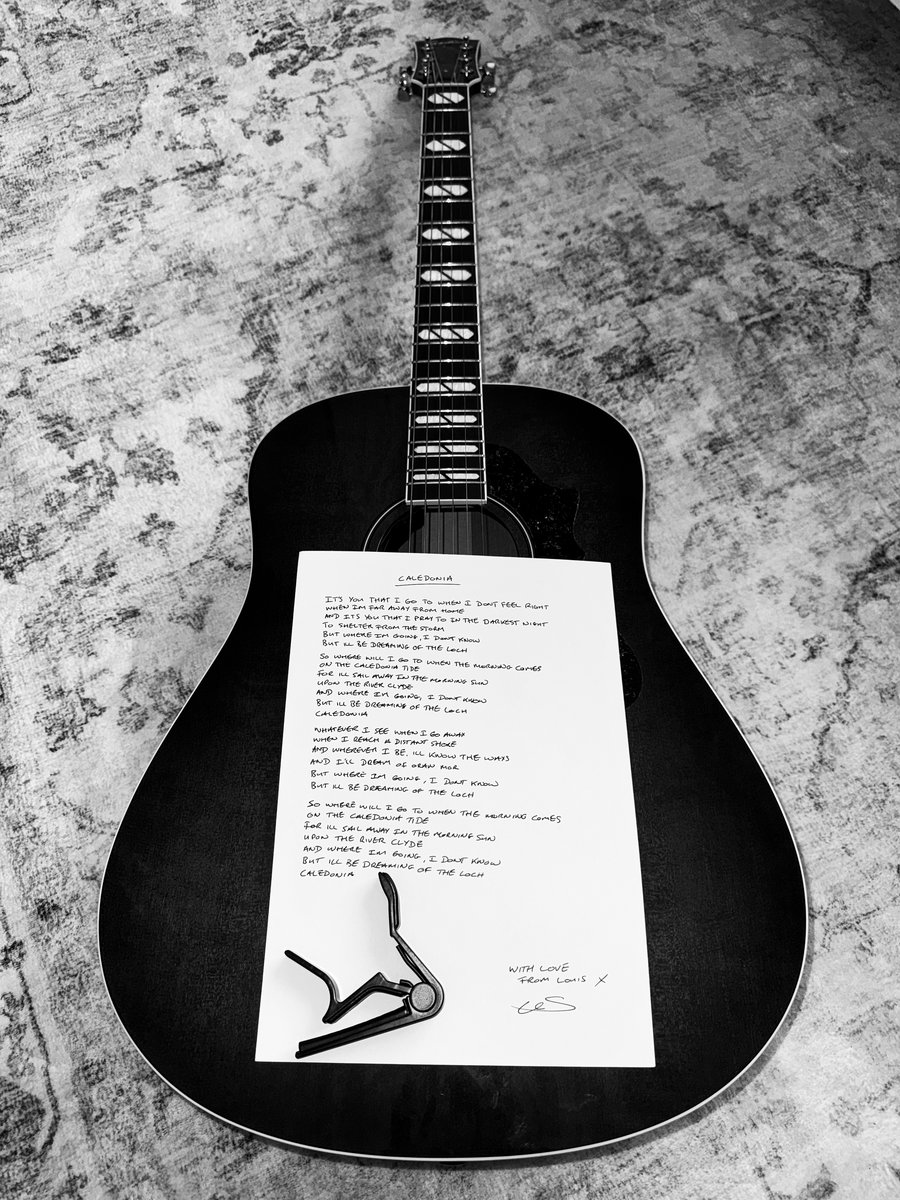 CALEDONIA
IT'S YOU THAT I GO TO WHEN I DONT FEEL RIGHT
WHEN IM FAR AWAY FROM HOME
AND IT'S YOU THAT I PRAY TO IN THE DARKEST NIGHT
TO SHELTER FROM THE STORM
BUT WHERE IM GOING, I DONT KNOW
BUT ILL BE DREAMING OF THE LOCH
SO WHERE WILL I GO TO WHEN THE MORNING COMES
ON THE CALEDONIA TIDE
FOR ILL SAIL AWAY IN THE MORNING SUN
UPON THE RIVER CLYDE
AND WHERE IM GOING, I DONT KNOW
BUT ILL BE DREAMING OF THE LOCH
CALEDONIA
WHATEVER I SEE WHEN I GO AWAY
WHEN I REACH A DISTANT SHORE
AND WHEREVER I BE. ILL KNOW THE WAYS
AND I'LL DREAM OF ORAN MOR
BUT WHERE IM GOING, I DONT KNOW
BUT ILL BE DREAMING OF THE LOCH
SO WHERE WILL I GO TO WHEN THE MORNING COMES
ON THE CALEDONIA TIDE
FOR ILL SAIL AWAY IN THE MORNING SUN
UPON THE RIVER CLYDE
AND WHERE IM GOING, I DONT KNOW
BUT ILL BE DREAMING OF THE LOCH
CALEDONIA
WITH LOVE
FROM LOUIS X